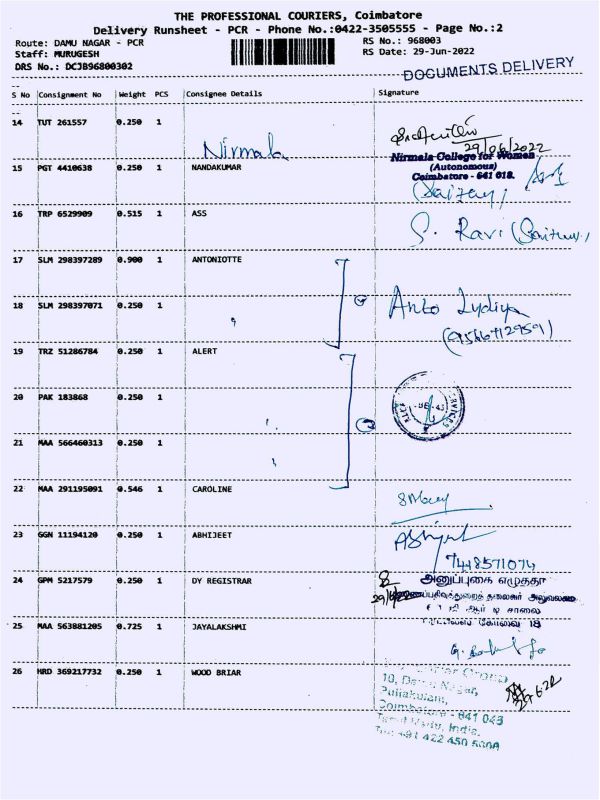 THE PROFESSIONAL COURIERS, Coimbatore
Delivery Runsheet - PCR - Phone No.:0422-3505555 - Page No.:2
Route: DAMU NAGAR - PCR
RS No.: 968003
Staff: MURUGESH
RS Date: 29-Jun-2022
DRS No.: DCJB96800302
DOCUMENTS DELIVERY
S No Consignment No Weight PCS Consignee Details Signature
14 TUT 261557 0.250 1
Nirmala
29/06/2022
Nirmala College for Women
(Autonomous)
Coimbatore - 641 018.
15 PGT 4410638 0.250 1 NANDAKUMAR
16 TRP 6529909 0.515 1 ASS
S. Ravi
17 SLM 298397289 0.900 1 ANTONIOTTE
18 SLM 298397071 0.250 1
Anto Lydiya
19 TRZ 51286784 0.250 1 ALERT
20 PAK 183868 0.250 1
21 MAA 566460313 0.250 1
22 MAA 291195091 0.546 1 CAROLINE
23 GGN 11194120 0.250 1 ABHIJEET
7418571074
24 GPM 5217579 0.250 1 DY REGISTRAR
அனுப்புகை எழுத்தா
25 MAA 563881205 0.725 1 JAYALAKSHMI
26 HRD 369217732 0.250 1 WOOD BRIAR
10, Damu Nagar,
Puliakulam,
Coimbatore - 641 045
Tamil Nadu, India.